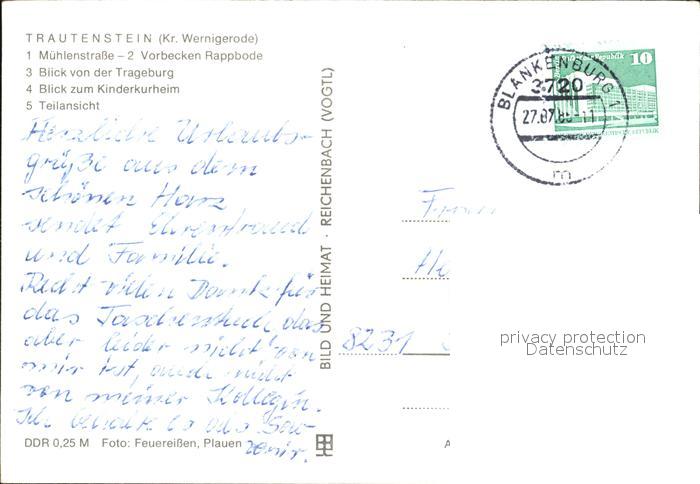 TRAUTENSTEIN (Kr. Wernigerode)
1 Mühlenstraße – 2 Vorbecken Rappbode
3 Blick von der Trageburg
4 Blick zum Kinderkurheim
5 Teilansicht
Herzliche Urlaubs-
grüße aus dem
schönen Harz
sendet Ehrentraud
und Familie.
Recht vielen Dank für
das Taschentuch das
aber leider nicht von
mir ist, auch nicht
von meiner Kollegin.
Ich behalte es als Sou-
venir.
DDR 0,25 M Foto: Feuereißen, Plauen
BILD UND HEIMAT · REICHENBACH (VOGTL)
BLANKENBURG 1
3720
27.07.8
m
10
8231
privacy protection
Datenschutz